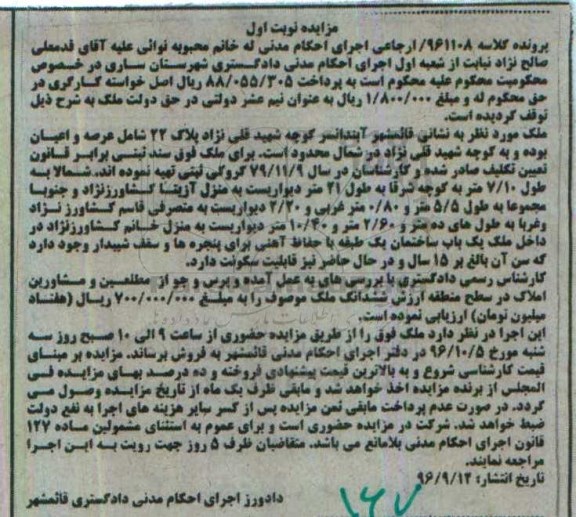 مزایده نوبت اول
پرونده کلاسه ۹۶۱۱۰۸/ ارجاعی اجرای احکام مدنی له خانم محبوبه نوائی علیه آقای قدمعلی
صالح نژاد نیابت از شعبه اول اجرای احکام مدنی دادگستری شهرستان ساری در خصوص
محکومیت محکوم علیه محکوم است به پرداخت ۸۸/۰۵۵/۳۰۵ ریال اصل خواسته کارگری در
حق محکوم له و مبلغ ۱/۸۰۰/۰۰۰ ریال به عنوان نیم عشر دولتی در حق دولت ملک به شرح ذیل
توقف گردیده است.
ملک مورد نظر به نشانی قائمشهر آبندانسر کوچه شهید قلی نژاد پلاک ۲۲ شامل عرصه و اعیان
بوده و به کوچه شهید قلی نژاد در شمال محدود است. برای ملک فوق سند ثبتی برابر قانون
تعیین تکلیف صادر شده و کارشناسان در سال ۷۹/۱۱/۹ کروکی ثبتی تهیه نموده اند. شمالا به
طول ۷/۱۰ متر به کوچه شرقا به طول ۲۱ متر دیواریست به منزل آزیتا کشاورزنژاد و جنوبا
مجموعا به طول ۵/۵ متر و ۰/۸۰ متر غربی و ۲/۲۰ دیواریست به متصرفی قاسم کشاورز نژاد
وغربا به طول های ده متر و ۲/۶۰ متر و ۱۰/۴۰ متر دیواریست به منزل خانم کشاورزنژاد در
داخل ملک یک باب ساختمان یک طبقه با حفاظ آهنی برای پنجره ها و سقف شیبدار وجود دارد
که سن آن بالغ بر ۱۵ سال و در حال حاضر نیز قابلیت سکونت دارد.
کارشناس رسمی دادگستری با بررسی های به عمل آمده و پرس و جو از مطلعین و مشاورین
املاک در سطح منطقه ارزش ششدانگ ملک موصوف را به مبلغ ۷۰۰/۰۰۰/۰۰۰ ریال (هفتاد
میلیون تومان) ارزیابی نموده است.
این اجرا در نظر دارد ملک فوق را از طریق مزایده حضوری از ساعت ۹ الی ۱۰ صبح روز سه
شنبه مورخ ۹۶/۱۰/۵ در دفتر اجرای احکام مدنی قائمشهر به فروش برساند. مزایده بر مبنای
قیمت کارشناسی شروع و به بالاترین قیمت پیشنهادی فروخته و ده درصد بهای مزایده فی
المجلس از برنده مزایده اخذ خواهد شد و مابقی ظرف یک ماه از تاریخ مزایده وصول می
گردد. در صورت عدم پرداخت مابقی ثمن مزایده پس از کسر سایر هزینه های اجرا به نفع دولت
ضبط خواهد شد. شرکت در مزایده حضوری است و برای عموم به استثنای مشمولین ماده ۱۲۷
قانون اجرای احکام مدنی بلامانع می باشد. متقاضیان ظرف ۵ روز جهت رویت به این اجرا
مراجعه نمایند.
تاریخ انتشار: ۹۶/۹/۱۲
دادورز اجرای احکام مدنی دادگستری قائمشهر
۱۶۷